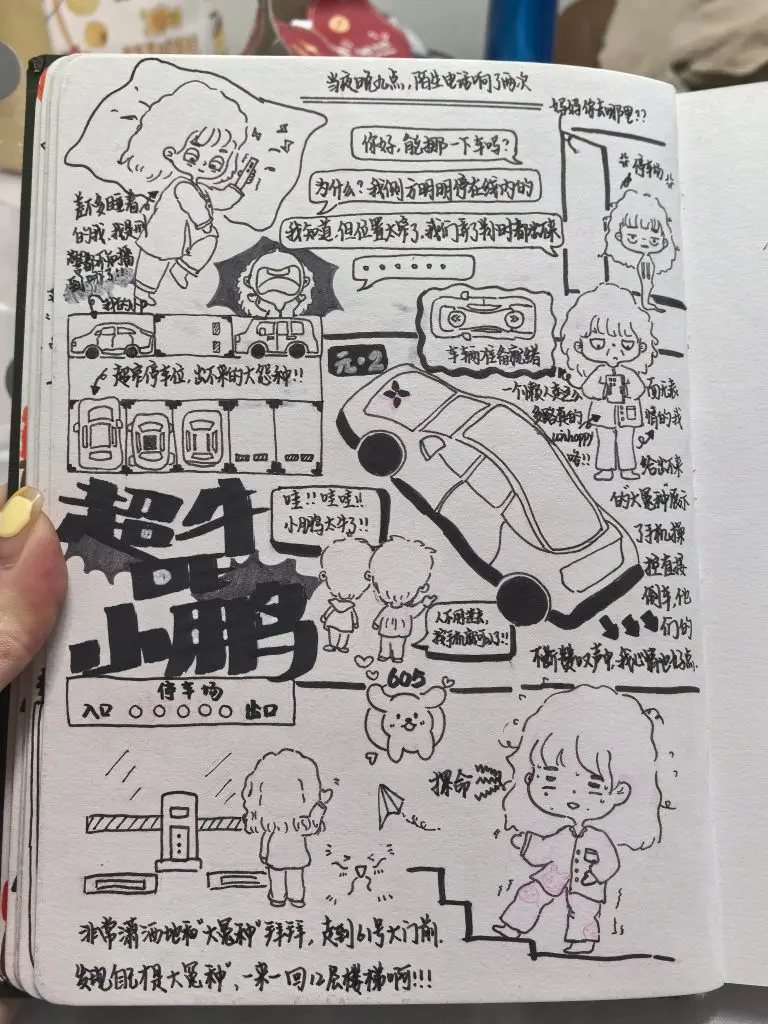 当夜晚九点，陌生电话响了两次
妈妈你去哪里??
你好，能挪一下车吗？
停车场
为什么？我们方明明停在线内的
我知道，但位置太窄了，我们弄了半小时都出不来
差不多睡着了
的我，我是到
我的小P
车辆准备就绪
超窄停车位，出不来的大怨种!!
元·2
一个懒人
unhappy
咯!!
面无表
情的我
给出不来
的"大冤种"展示
了手机操
控直接
倒车，他
们的
不断赞叹声中，我心情也好点.
超牛
小鹏
哇!!哇哇!!
小鹏太牛了!!
人不用进去，
我手机就可以了!!
605
停车场
入口 ○○○○○ 出口
操命
非常潇洒地和"大冤种"拜拜，走到61号大门前.
发现自己才是大冤种"，一来一回12层楼梯啊!!!